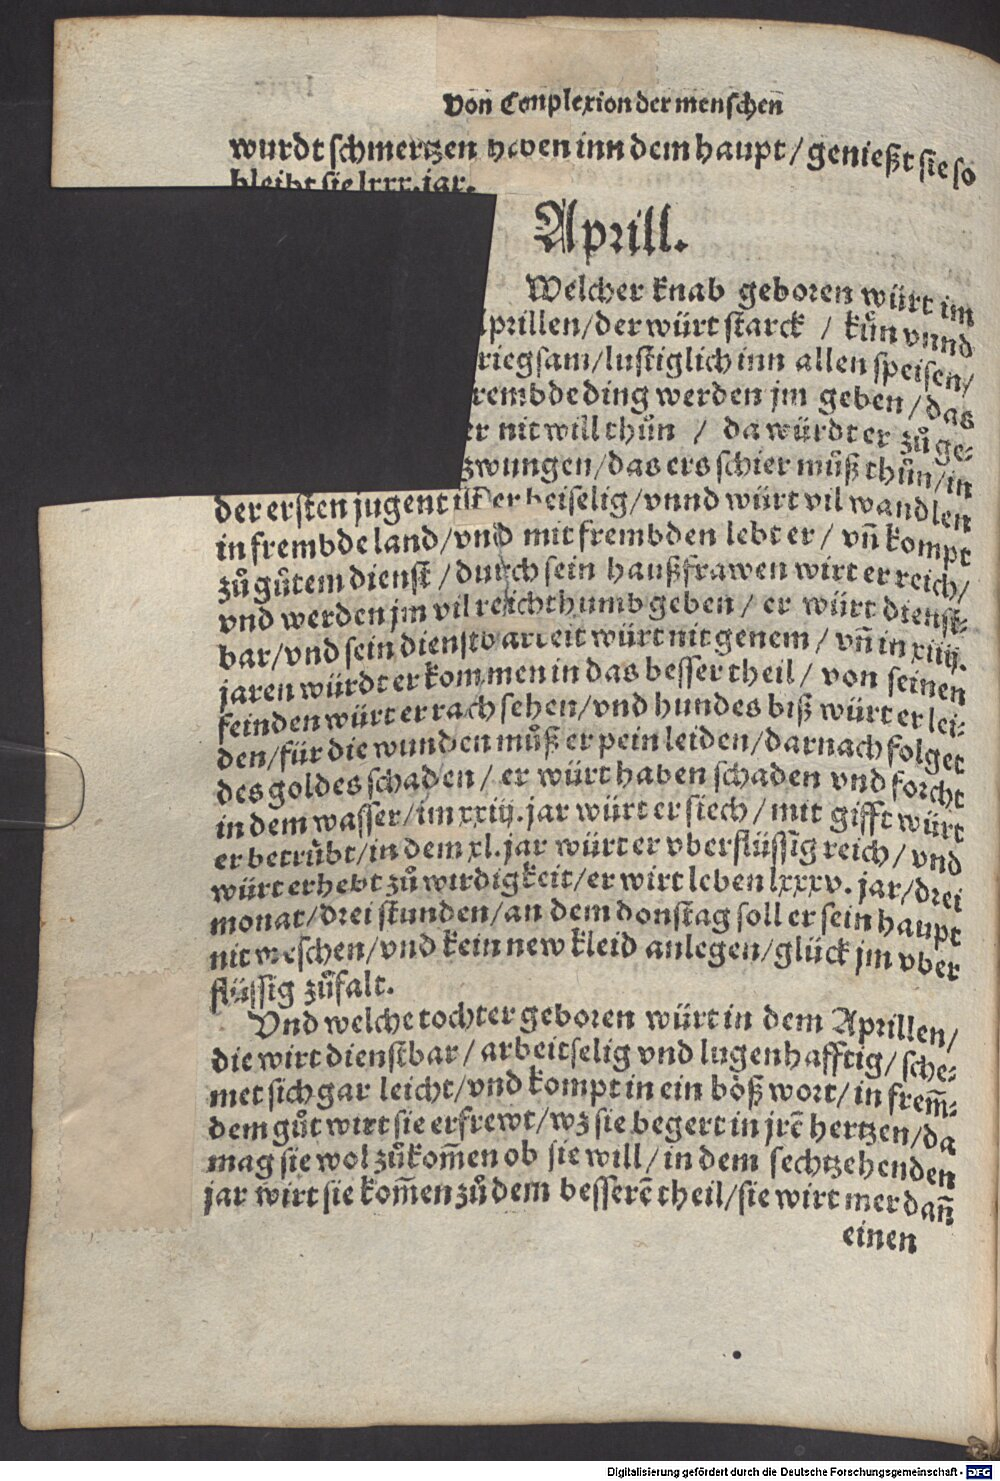 Von Complexion der menschen
wurdt schmertzen haben inn dem haupt / genießt sie so
bleibt sie lxxx. jar.
Aprill.
Welcher knab geboren würt im
Aprillen / der würt starck / kuͤn vnnd
riegsam / lustiglich inn allen speisen /
rembde ding werden jm geben / das
er nit will thuͦn / da würdt er zuͦ ge⸗
zwungen / das ers schier muͦß thuͦn / in
der ersten jugent ist er heiselig / vnnd würt vil wandlen
in frembde land / vnd mit frembden lebt er / vn̄ kompt
zuͦ guͦtem dienst / durch sein haußfrawen wirt er reich /
vnd werden jm vil reichthumb geben / er würt dienst⸗
bar / vnd sein dienstbarkeit würt nit genem / vn̄ in xiiij.
jaren würdt er kommen in das besser theil / von seinen
feinden würt er rach sehen / vnd hundes biß würt er lei⸗
den / für die wunden muͦß er pein leiden / darnach folget
des goldes schaden / er würt haben schaden vnd forcht
in dem wasser / im xxiij. jar würt er siech / mit gifft würt
er betruͤbt / in dem xl. jar würt er vberflüssig reich / vnd
würt erhebt zuͦ wirdigkeit / er wirt leben lxxxv. jar / drei
monat / drei stunden / an dem donstag soll er sein haupt
nit weschen / vnd kein new kleid anlegen / glück jm vber
flüssig zuͦfalt.
Vnd welche tochter geboren würt in dem Aprillen /
die wirt dienstbar / arbeitselig vnd lugenhafftig / sche⸗
met sich gar leicht / vnd kompt in ein böß wort / in frem̄⸗
dem guͦt wirt sie erfrewt / wz sie begert in jrē hertzen / da
mag sie wol zuͦkom̄en ob sie will / in dem sechtzehenden
jar wirt sie kom̄en zuͦ dem besserē theil / sie wirt mer dan̄
einen
Digitalisierung gefördert durch die Deutsche Forschungsgemeinschaft - DFG